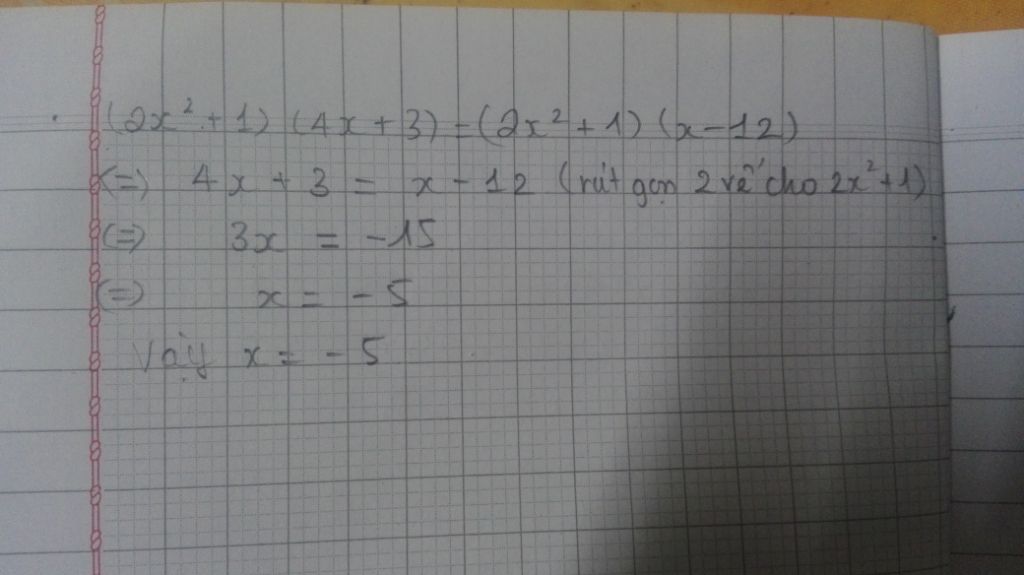 (2x² + 1) (4x + 3) = (2x² + 1) (x - 12)
(=) 4x + 3 = x - 12 (rút gọn 2 vế cho 2x² + 1)
(=) 3x = -15
(=) x = - 5
Vậy x = - 5